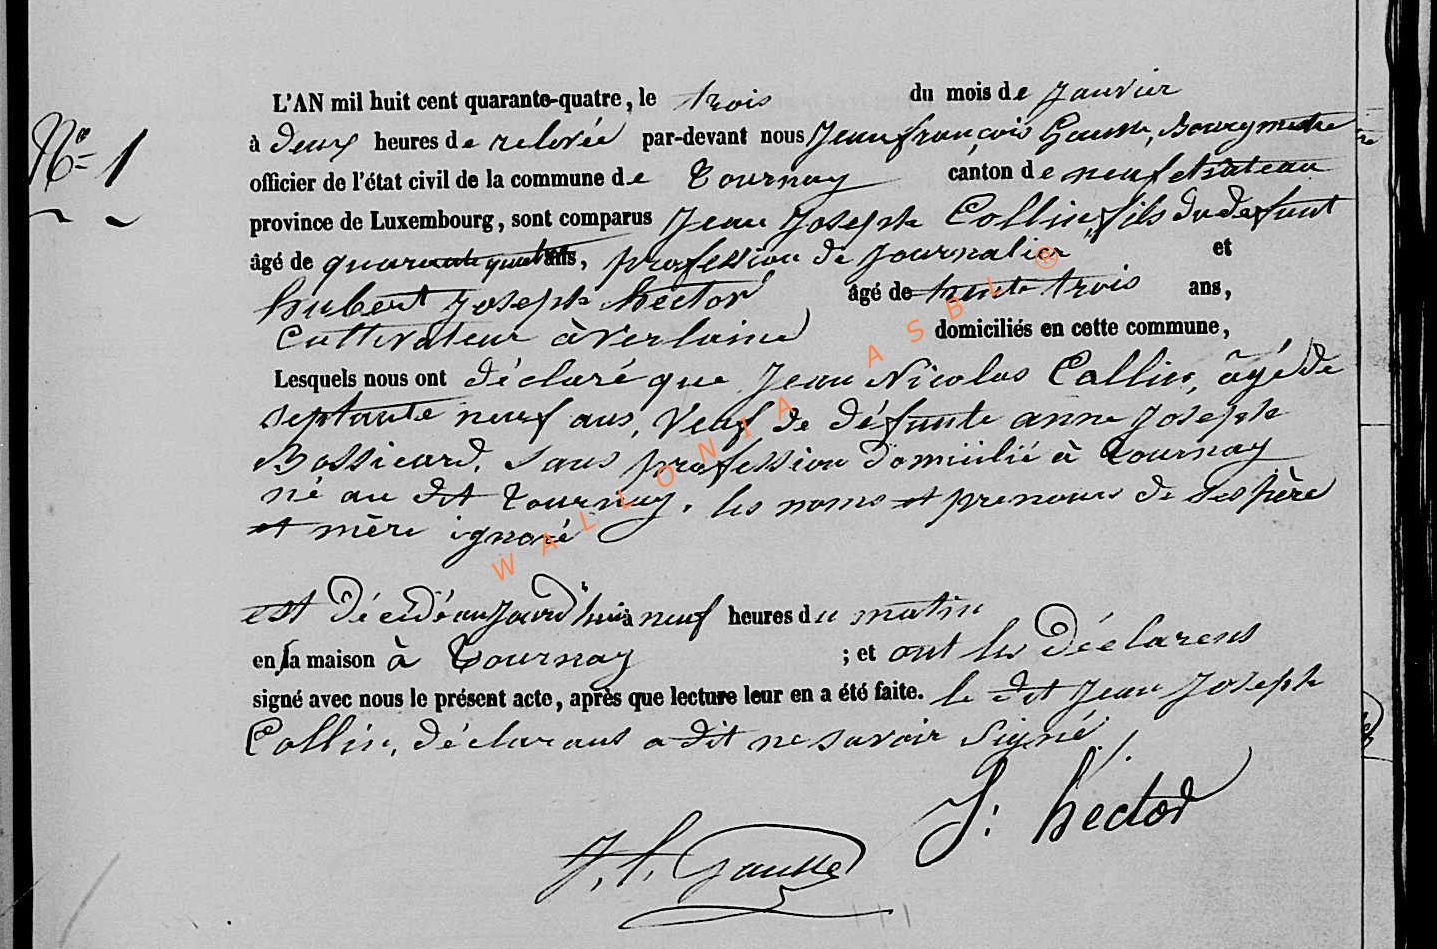 N° 1
L'AN mil huit cent quarante-quatre, le trois du mois de janvier
à deux heures de relevée par-devant nous Jean françois Gausse, Bourgmestre
officier de l'état civil de la commune de Tournay canton de neufchâteau
province de Luxembourg, sont comparus Jean Joseph Collin, fils du defunt
âgé de quarante quatre ans, profession de journalier et
hubert Joseph hector âgé de trente trois ans,
Cultivateur à Verlaine domiciliés en cette commune,
Lesquels nous ont déclaré que Jean Nicolas Collin, âgé de
septante neuf ans, Veuf de défunte anne Joseph
Bossicard, sans profession domicilié à Tournay
né au dit Tournay, les noms et prenoms de ses père
et mère ignoré
est décédé aujourd'hui à neuf heures du matin
en sa maison à Tournay ; et ont les déclarens
signé avec nous le présent acte, après que lecture leur en a été faite. le dit Jean Joseph
Collin, déclarans a dit ne savoir Signé
J: hector
J. f. Gausse
WALLONIA ASBL ®